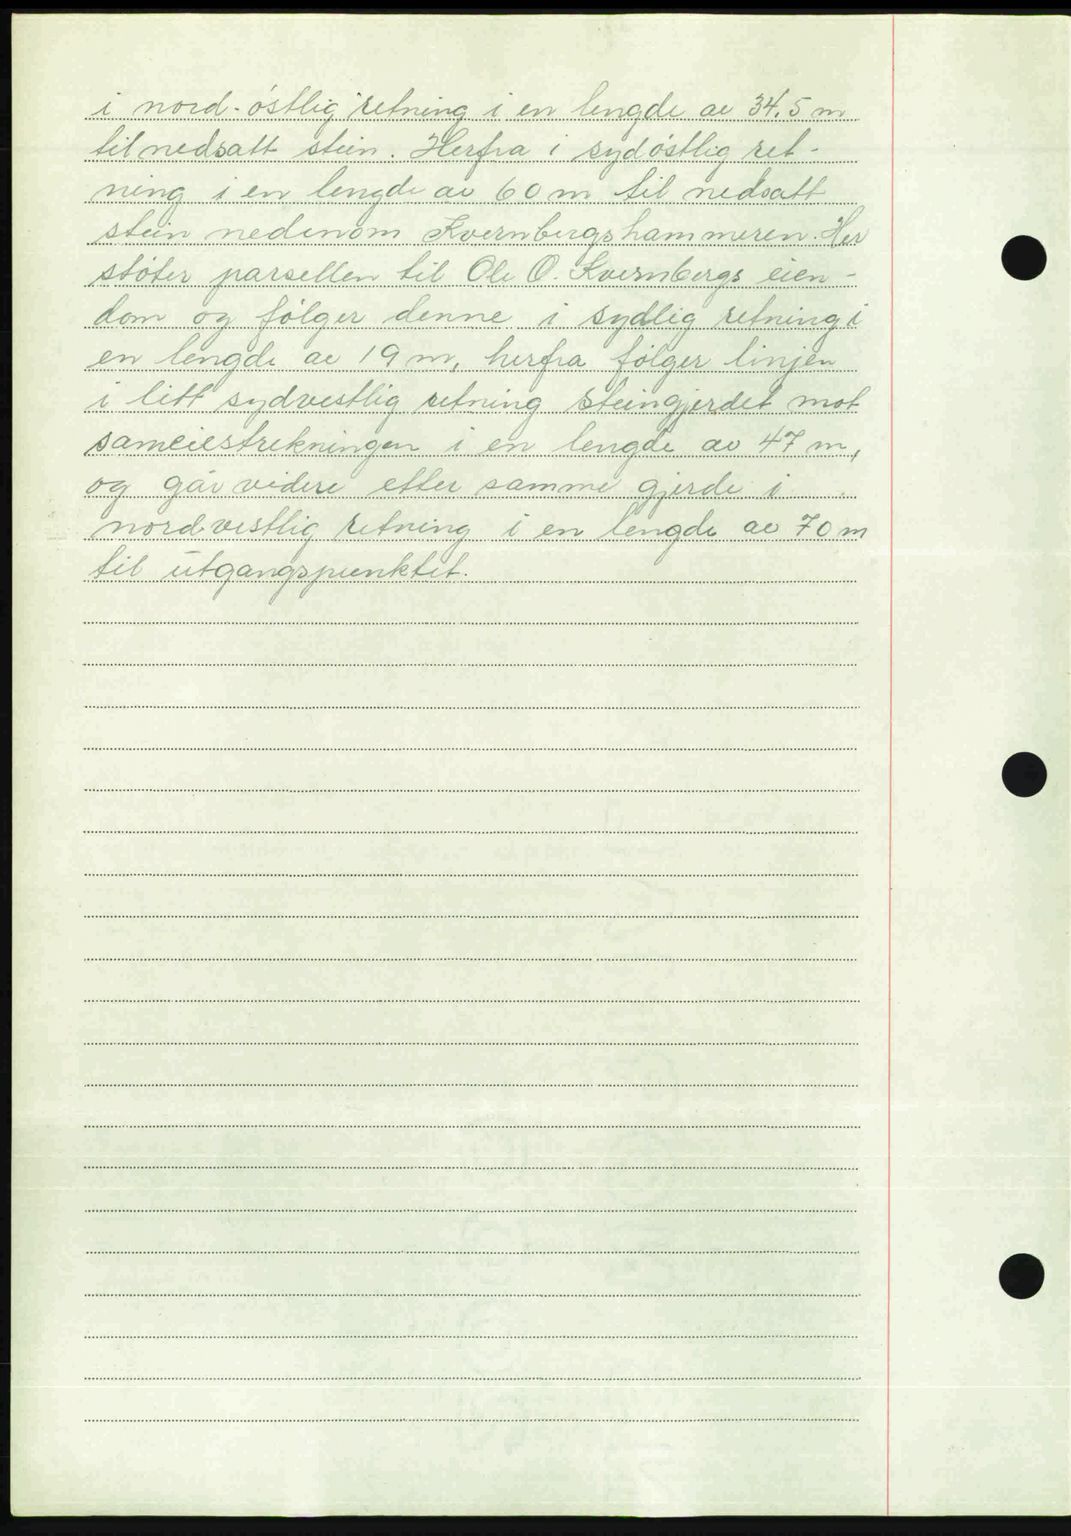 i nord-østlig retning i en lengde av 34.5 m
til nedsatt stein. Herfra i sydøstlig ret-
ning i en lengde av 60 m til nedsatt
stein nedenom Kvernbergshammeren. Her
støter parsellen til Ole O. Kvernbergs eien-
dom og følger denne i sydlig retning i
en lengde av 19 m, herfra følger linjen
i litt sydvestlig retning steingjerdet mot
sameiestrekningen i en lengde av 47 m,
og går videre etter samme gjerde i
nordvestlig retning i en lengde av 70 m
til utgangspunktet.